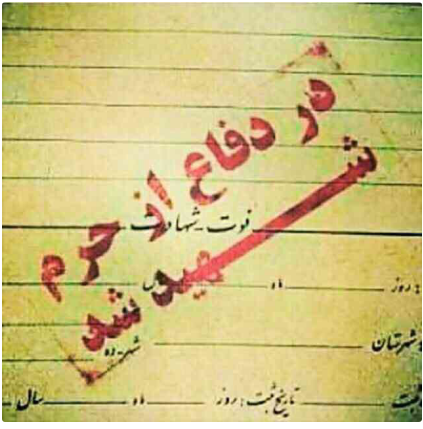 در دفاع از حرم
شهید شد
فوت - شهادت
روز : ماه
شهرستان شهر - ده
ثبت تاریخ ثبت : روز ماه سال